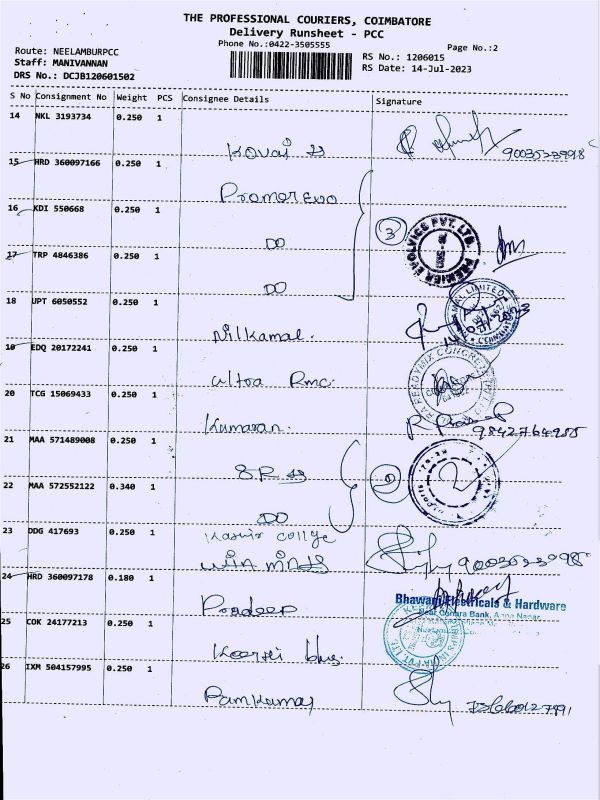 THE PROFESSIONAL COURIERS, COIMBATORE
Delivery Runsheet - PCC
Phone No.:0422-3505555
Page No.:2
Route: NEELAMBURPCC
Staff: MANIVANNAN
DRS No.: DCJB120601502
RS No.: 1206015
RS Date: 14-Jul-2023
S No Consignment No Weight PCS Consignee Details Signature
14 NKL 3193734 0.250 1
Kovai
15 HRD 360097166 0.250 1
16 KDI 550668 0.250 1
DO
3
PREMIER EVOLVICS PVT. LTD.
17 TRP 4846386 0.250 1
DO
18 UPT 6050552 0.250 1
Nilkamal.
LIMITED
19 EDQ 20172241 0.250 1
Ultra Rmc.
READYMIX CONCRETE
20 TCG 15069433 0.250 1
Kumaran.
R Pradeep
9842764955
21 MAA 571489008 0.250 1
SR
22 MAA 572552122 0.340 1
DO
23 DDG 417693 0.250 1
collge
24 HRD 360097178 0.180 1
Pradeep
Bhawani Electricals & Hardware
Near Canara Bank, Anna Nagar,
25 COK 24177213 0.250 1
26 IXM 504157995 0.250 1
Ramkumar